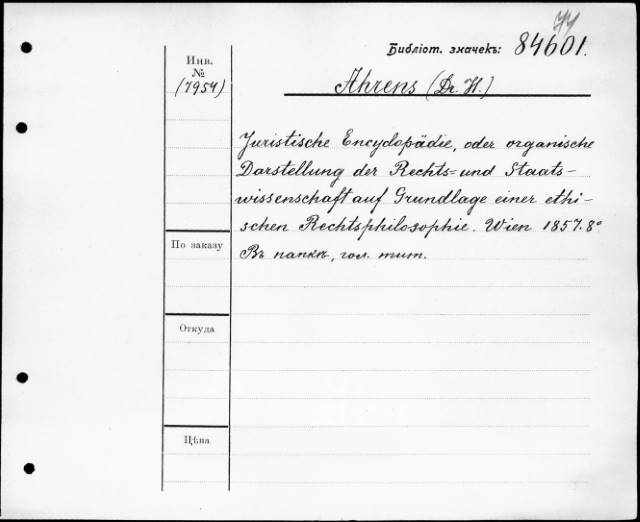 74
Библіот. значекъ: 84601.
Инв.
№
(7954)
Ahrens (Dr. H.)
Juristische Encyclopädie, oder organische
Darstellung der Rechts= und Staats-
wissenschaft auf Grundlage einer ethi-
schen Rechtsphilosophie. Wien 1857. 8°
Въ папкѣ, гол. тит.
По заказу
Откуда
Цѣна